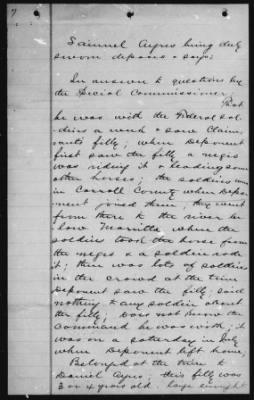 7
Samuel Ayres being duly
sworn deposes & says:
In answer to questions by
the Special Commissioner,
That
he was with the Federal sol-
diers a week & saw Claim-
ant's filly; when Deponent
first saw the filly a negro
was riding it & leading some
other horses; the soldiers were
in Carroll County when Depo-
nent joined them; they went
from there to the river be-
low Marietta, where the
soldier took the horse from
the negro & a soldier rode
it; there was lots of soldiers
in the crowd at the time
Deponent saw the filly; said
nothing to any soldier about
the filly; Does not know the
Command he was with; it
was on a saturday in July
when Deponent left home,
Belonged at the time to
Daniel Ayres; this filly was
3 or 4 years old. large enough